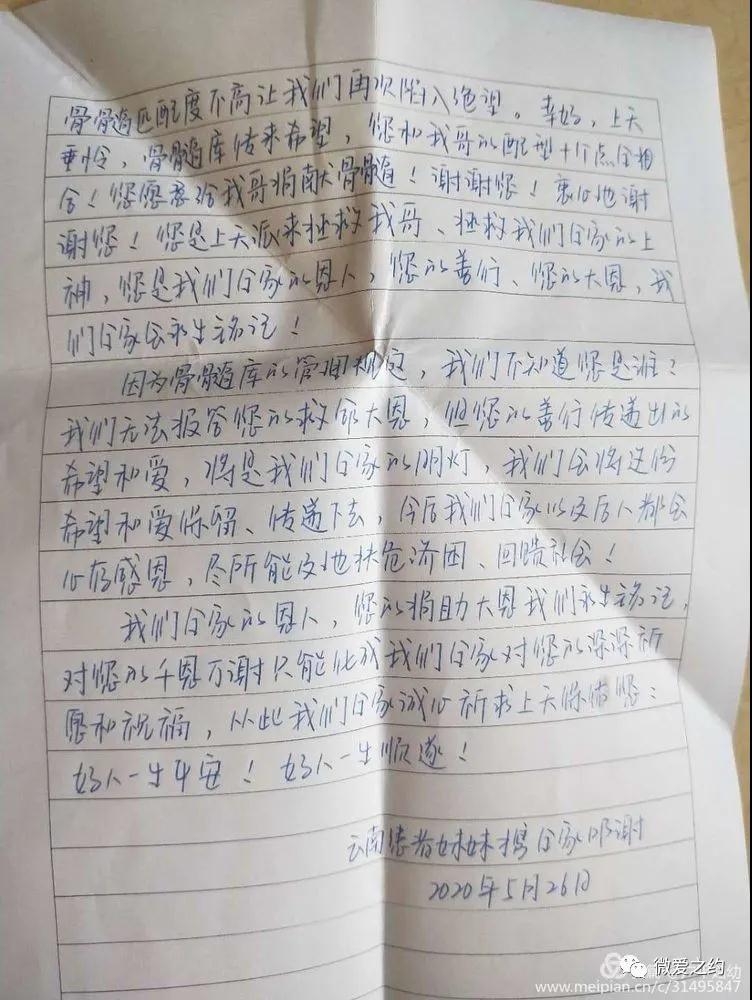 骨髓匹配度不高让我们再次陷入绝望。幸好,上天
垂怜,骨髓库传来希望,您和我哥的配型十个点全相
合!您愿意给我哥捐献骨髓!谢谢您!衷心地谢
谢您!您是上天派来拯救我哥、拯救我们全家的上
神,您是我们全家的恩人,您的善行、您的大恩,我
们全家会永生铭记!
因为骨髓库的管理规定,我们不知道您是谁?
我们无法报答您的救命大恩,但您的善行传递出的
希望和爱,将是我们全家的明灯,我们会将这份
希望和爱保留、传递下去,今后我们全家以及后人都会
心存感恩,尽所能及地扶危济困、回馈社会!
我们全家的恩人,您的捐助大恩我们永生铭记,
对您的千恩万谢只能化成我们全家对您的深深祈
愿和祝福,从此我们全家诚心祈求上天保佑您:
好人一生平安!好人一生顺遂!
云南患者妹妹携全家叩谢
2020年5月26日
微爱之约
幼
www.meipian.cn/c/31495847